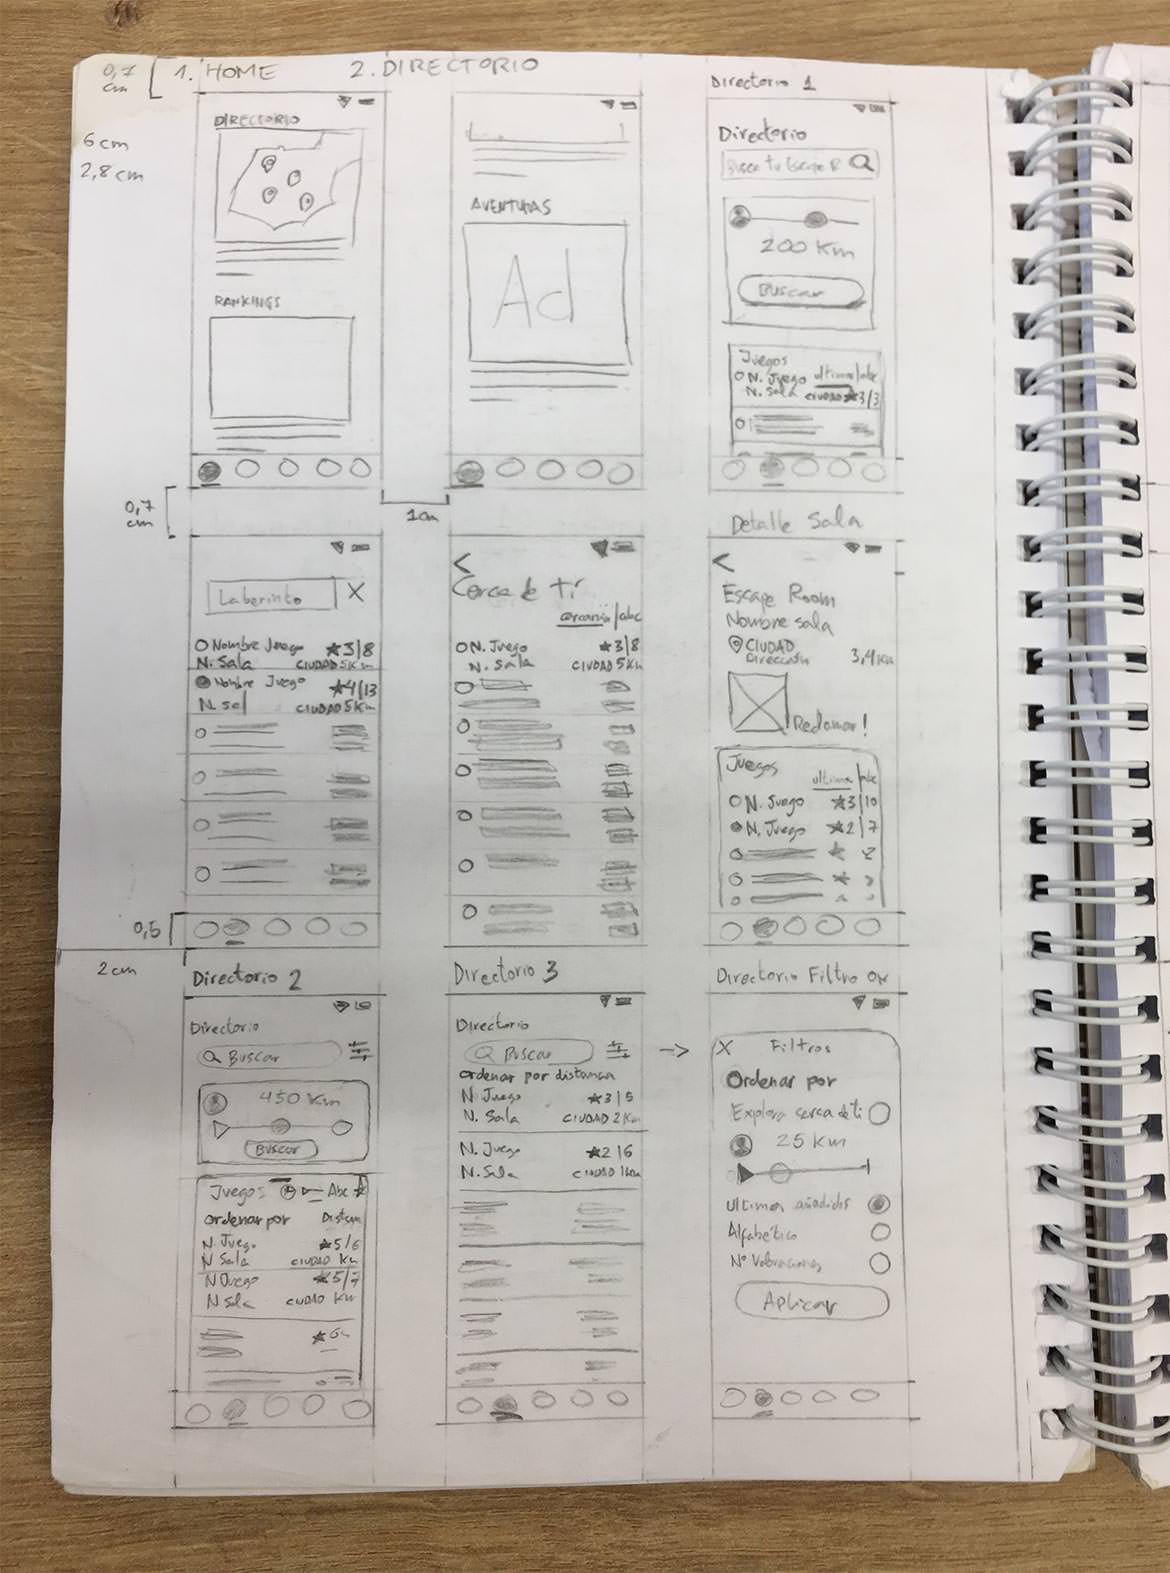 0,7 cm
1. HOME
2. DIRECTORIO
6 cm
2,8 cm
DIRECTORIO
RANKINGS
AVENTURAS
Ad
Directorio 1
Directorio
Busca tu Escape R
200 Km
Buscar
Juegos
N. Juego ultimos/abc
N. Sala CIUDAD ★3/3
0,7 cm
1cm
Laberinto X
Nombre Juego ★3/8
N. Sala CIUDAD 5Km
Nombre Juego ★4/13
N. Sal CIUDAD 5Km
<
Cerca de Ti
cercanía/abc
N. Juego ★3/8
N. Sala CIUDAD 5Km
Detalle Sala
<
Escape Room
Nombre sala
CIUDAD
Dirección 3,4Km
Reclamar!
Juegos
ultimos/abc
N. Juego ★3/10
N. Juego ★2/7
0,5
2cm
Directorio 2
Directorio
Buscar
450 Km
Buscar
Juegos Abc
Ordenar por
N. Juego ★5/6
N Sala CIUDAD Km
N Juego ★5/7
N Sala CIUDAD Km
Directorio 3
Directorio
Buscar
Ordenar por distancia
N. Juego ★3/5
N. Sala CIUDAD 2Km
N. Juego ★2/6
N. Sala CIUDAD
Directorio Filtro ON
X Filtros
Ordenar por
Explora cerca de ti
25 Km
Ultimos añadidos
Alfabético
Nº Valoraciones
Aplicar